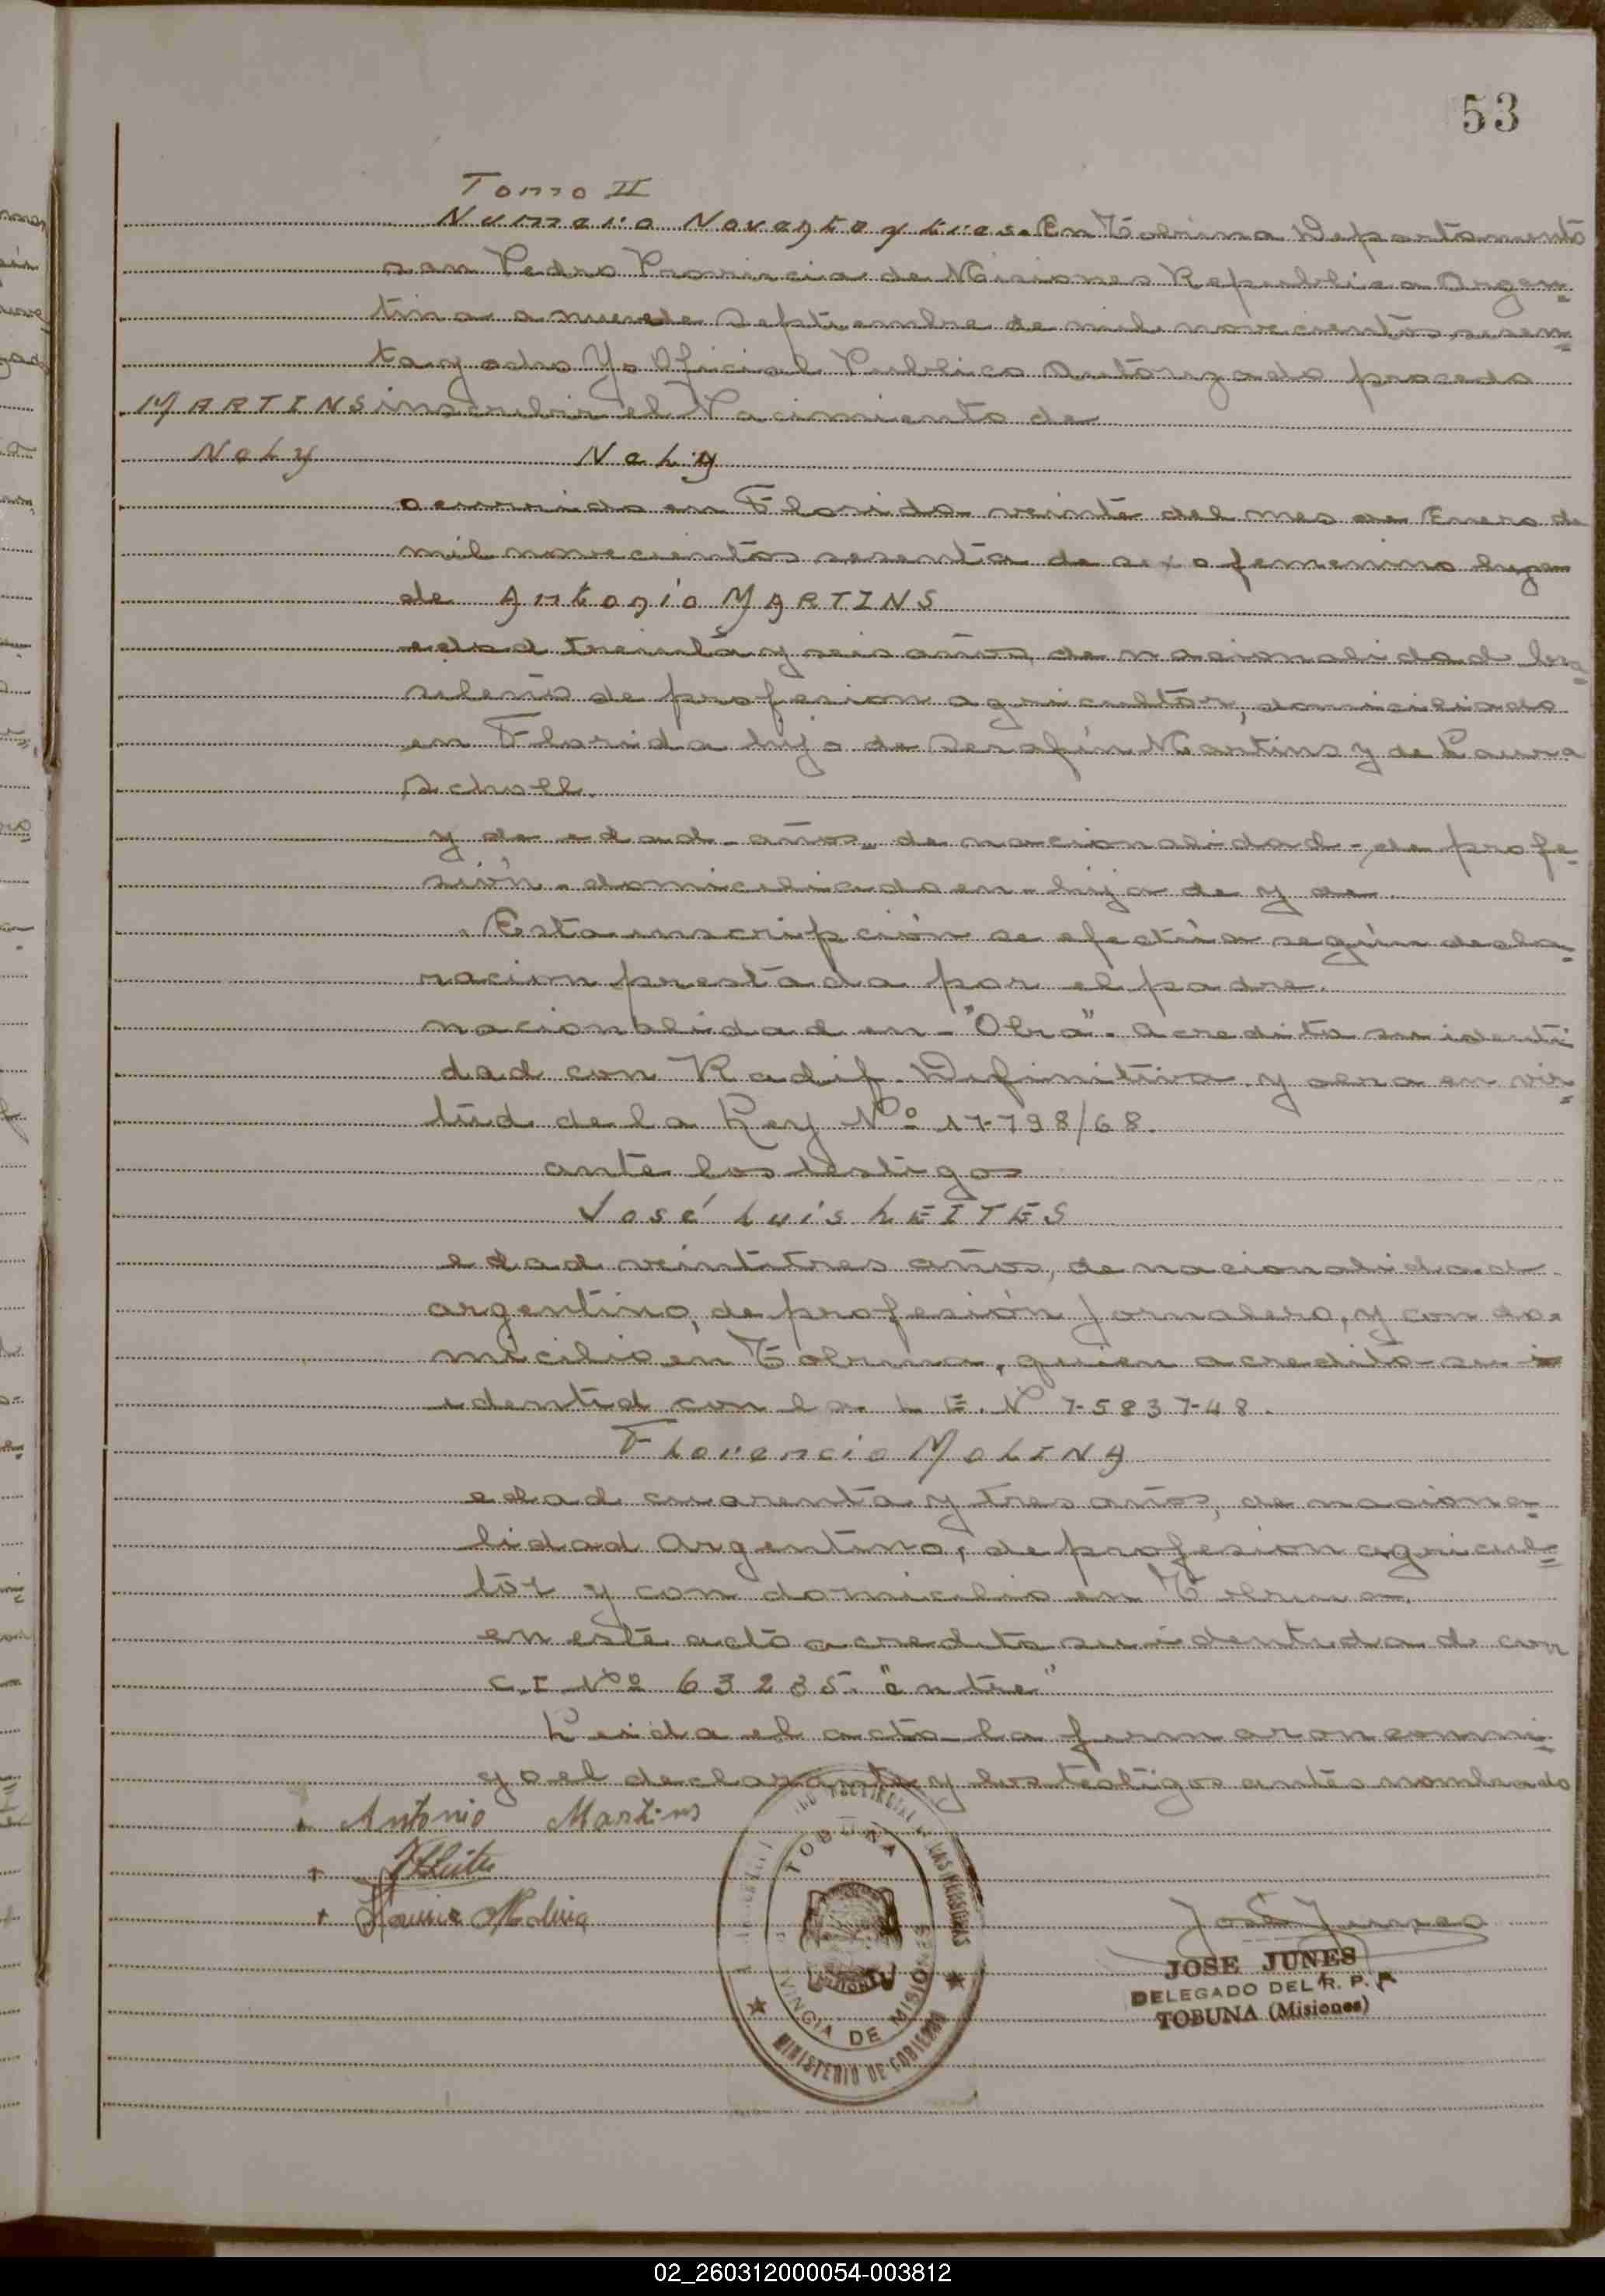 53
Tomo II
Numero Noventa y tres. En Tobuna Departamento
san Pedro Provincia de Misiones Republica Argen=
tina a nueve de Septiembre de mil novecientos sesen=
ta y ocho Yo Oficial Publico Autorizado procedo
MARTINS inscribir el Nacimiento de
Nely Nely
ocurrido en Florida veinte del mes de Enero de
mil novecientos sesenta de sexo femenino hija
de Antonio MARTINS
edad treinta y seis años, de nacionalidad bra=
sileño de profesion agricultor, domiciliado
en Florida hijo de Serafín Martins y de Laura
Scholl.
y de edad - años - de nacionalidad - de profe=
sión - domiciliado en - hija de y de.
Esta inscripción se efectúa según decla=
racion prestada por el padre.
nacionalidad en - "Obra" - acredita su identi=
dad con Radif. Definitiva y sera en vir=
tud de la Ley Nº 17798/68.
ante los testigos
José Luis LEITES
edad veintitres años, de nacionalidad
argentino, de profesión jornalero, y con do=
micilio en Tobuna, quien acredito su i
identid con la L E. Nº 7583748.
Florencio MOLINA
edad cuarenta y tres años, de naciona=
lidad Argentino, de profesion agricul=
tor y con domicilio en Tobuna.
en este acto acredita su identidad con
C.I Nº 63235. "entre"
Leida el acto la firmaron conmi=
go el declarante y los testigos antes nombrado
+ Antonio Martins
+ JLLeites
+ Molina
TOBUNA
LAS PERSONAS
PROVINCIA DE MISIONES
MINISTERIO DE GOBIERNO
José Junes
JOSE JUNES
DELEGADO DEL R. P. P
TOBUNA (Misiones)
02_260312000054-003812